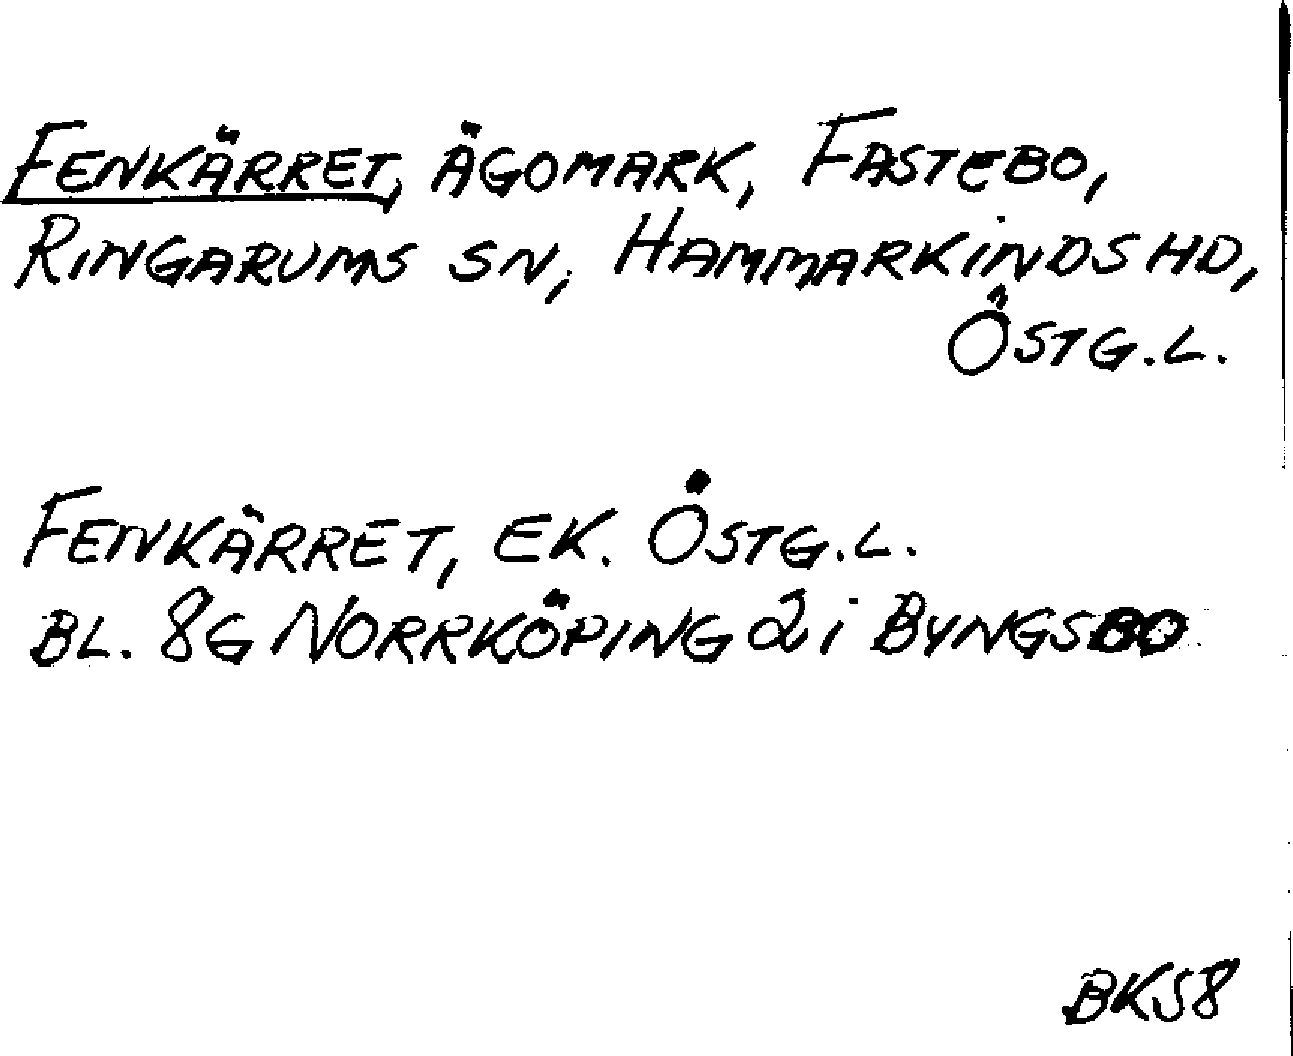 FENKÄRRET, ÄGOMARK, FASTEBO,
RINGARUMS SN, HAMMARKINDS HD,
ÖSTG.L.
FENKÄRRET, EK. ÖSTG.L.
BL. 8G NORRKÖPING 2i BYNGSBO
BKS8